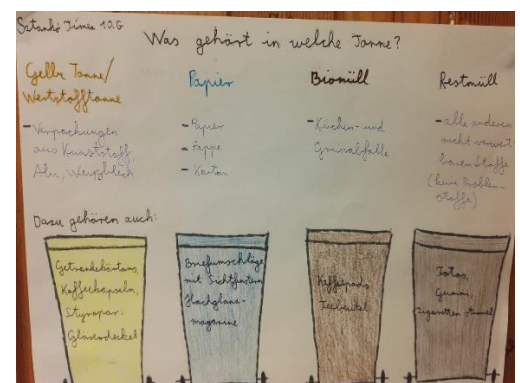 Sztankó Tímea 10.G
Was gehört in welche Tonne?
Gelbe Tonne/
Wertstofftonne
- Verpackungen
aus Kunststoff,
Alu, Weißblech
Papier
- Papier
- Pappe
- Karton
Biomüll
- Küchen- und
Grünabfälle
Restmüll
- alle anderen
nicht verwert
baren Stoffe
(keine Problem-
stoffe)
Dazu gehören auch:
Getränkekartons,
Kaffeekapseln,
Styropor,
Gläserdeckel
Briefumschläge
mit Sichtfenstern
Hochglanz-
magazine
Kaffeepads,
Teebeutel
Fotos,
Gummi,
Zigarettenstummel